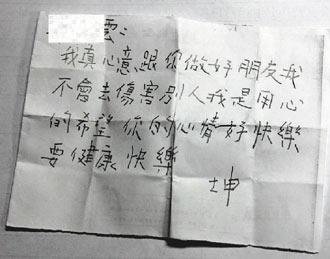 雲：
我真心意跟你做好朋友我
不會去傷害別人我是用心
的希望你的心情好快樂
要健康快樂
坤